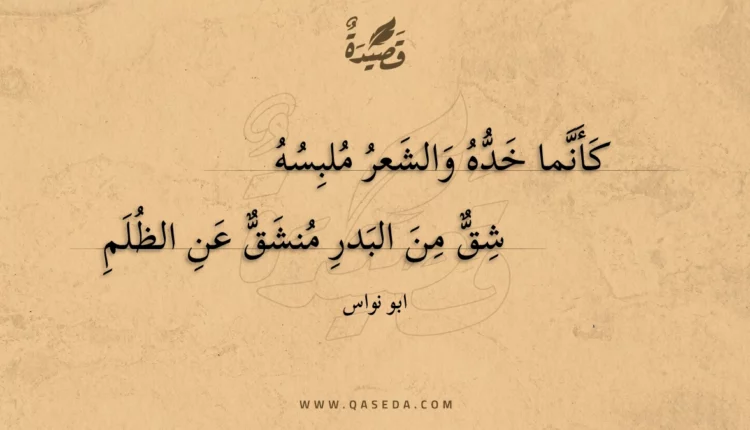 قَصِيدَةٌ
كَأَنَّما خَدُّهُ وَالشَعرُ مُلبِسُهُ
شِقٌّ مِنَ البَدرِ مُنشَقٌّ عَنِ الظُلَمِ
ابو نواس
WWW.QASEDA.COM